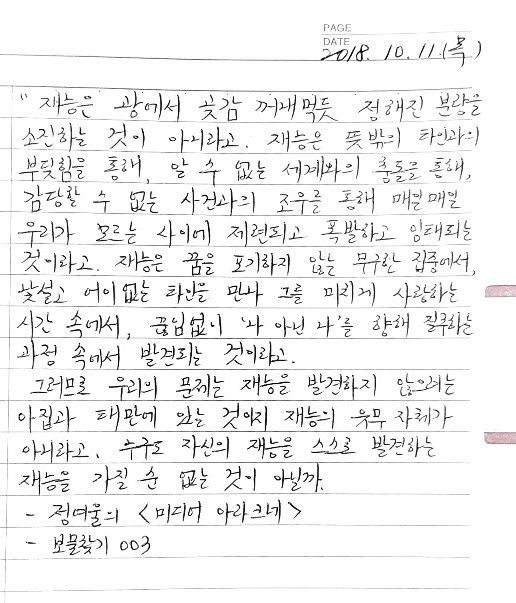 PAGE
DATE
2018. 10. 11.(목)
" 재능은 광에서 곶감 꺼내먹듯 정해진 분량을
소진하는 것이 아니라고. 재능은 뜻밖의 타인과의
부딪힘을 통해, 알 수 없는 세계와의 충돌을 통해,
감당할 수 없는 사건과의 조우를 통해 매일매일
우리가 모르는 사이에 제련되고 폭발하고 잉태되는
것이라고. 재능은 꿈을 포기하지 않는 무구한 집중에서,
낯설고 어이없는 타인을 만나 그를 미치게 사랑하는
시간 속에서, 끊임없이 '나 아닌 나'를 향해 질주하는
과정 속에서 발견되는 것이라고.
그러므로 우리의 문제는 재능을 발견하지 않으려는
아집과 태만에 있는 것이지 재능의 유무 자체가
아니라고. 누구도 자신의 재능을 스스로 발견하는
재능을 가질 순 없는 것이 아닐까.
- 정여울의 <미디어 아라크네>
- 보물찾기 003